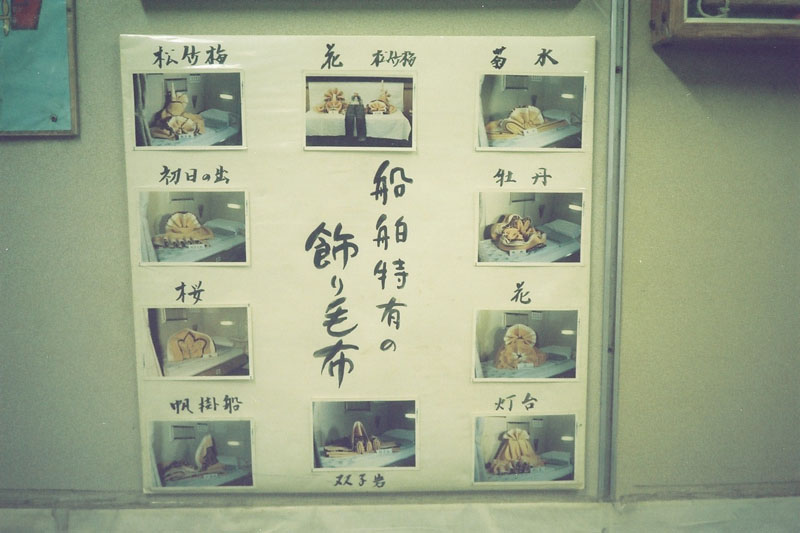 松竹梅
花 松竹梅
菊水
初日の出
船舶特有の
飾り毛布
牡丹
桜
花
帆掛船
双子岩
灯台